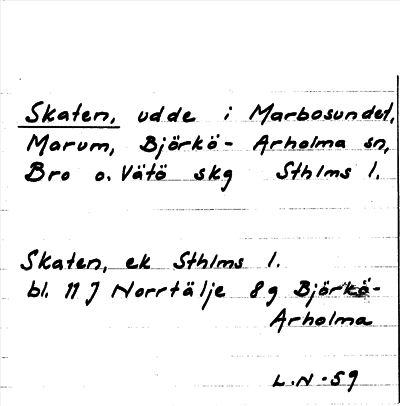 Skaten, udde i Marbosundet,
Marum, Björkö- Arholma sn,
Bro o. Vätö skg Sthlms l.
Skaten, ek Sthlms l.
bl. 11 J Norrtälje 8g Björkö-
Arholma
L.N-59